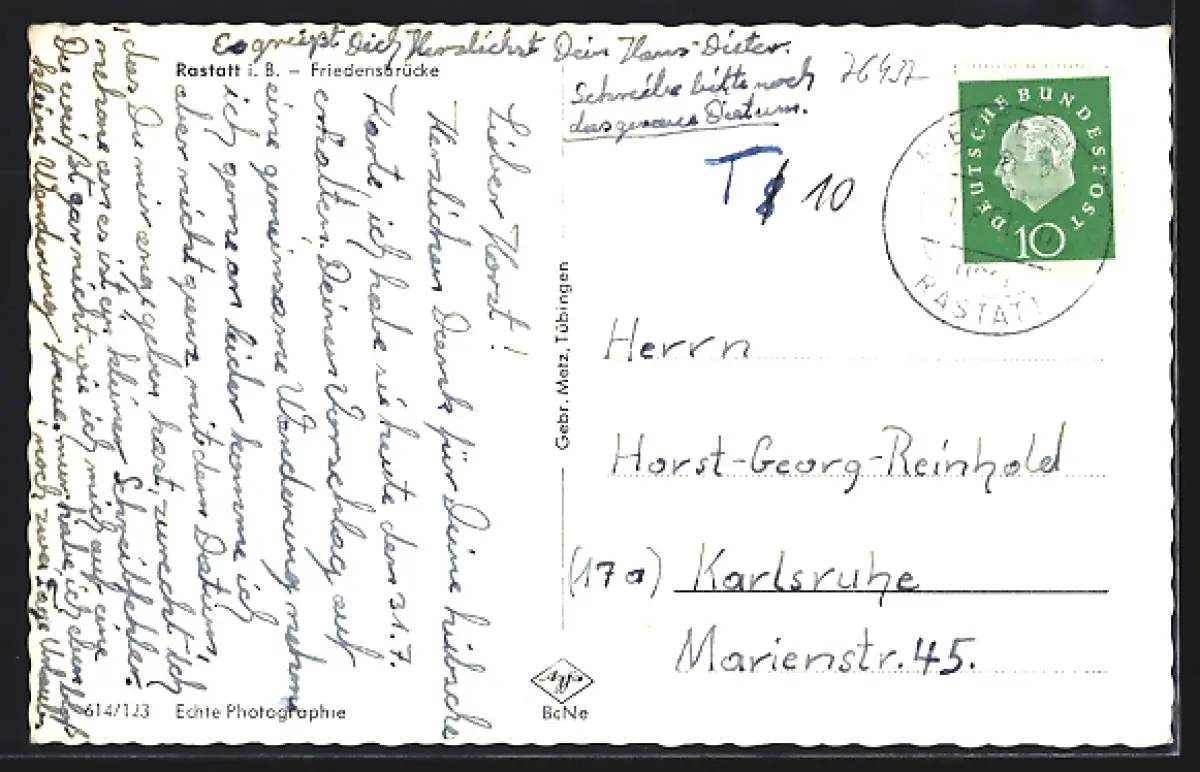 Es grüßt Dich Herzlichst Dein Hans-Dieter.
Schreibe bitte noch
das genaue Datum.
Rastatt i. B. – Friedensbrücke
Lieber Horst!
Herzlichen Dank für Deine hübsche
Karte, ich habe sie heute dem 31.7.
erhalten. Deinen Vorschlag auf
eine gemeinsame Wanderung nehme
ich gerne an leider komme ich
aber nicht ganz mit dem Datum,
das Du mir angegeben hast, zurecht. Ich
nehme an es ist ein kleiner Schreibfehler.
Du weißt gar nicht wie ich mich auf eine
kleine Wanderung freue, nur habe ich eben bloß
noch zwei Tage Urlaub
614/123 Echte Photographie
Gebr. Metz, Tübingen
Agfa
BcNe
T 10
DEUTSCHE BUNDESPOST
10
RASTATT
Herrn
Horst-Georg-Reinhold
(17a) Karlsruhe
Marienstr. 45.